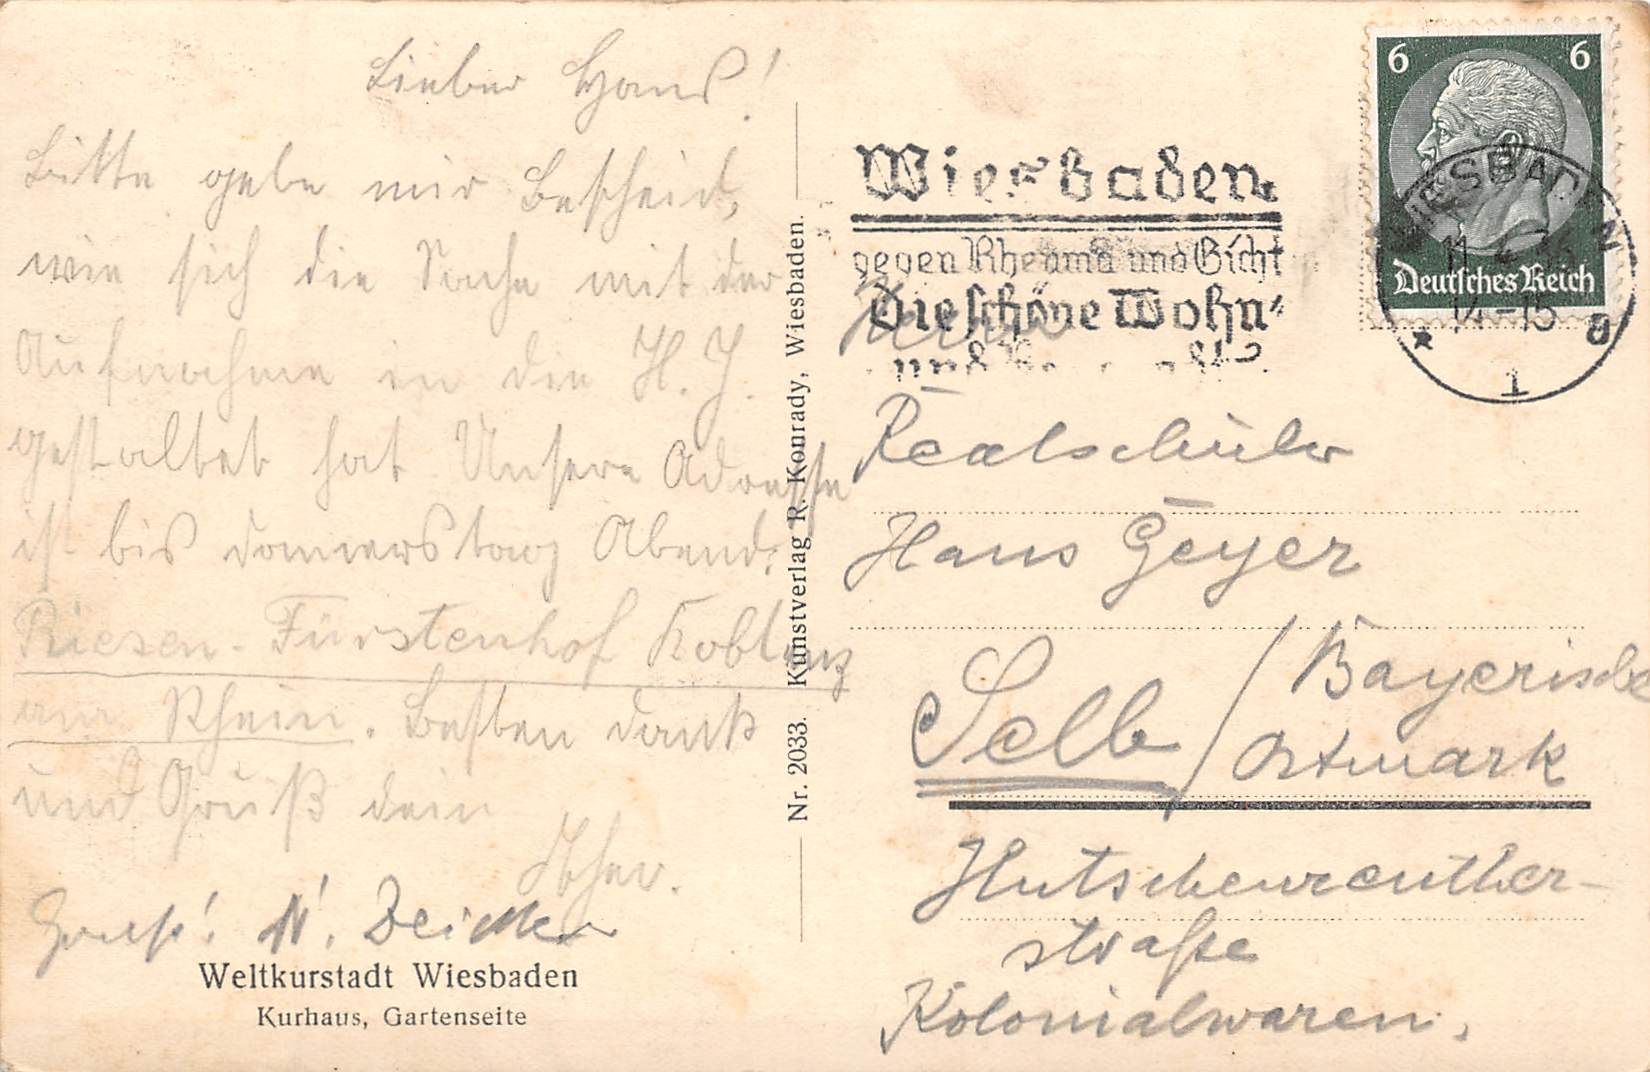 Lieber Hans!
Bitte gebe mir Bescheid,
wie sich die Sache mit der
Aufnahme in die H. J.
gestaltet hat. Unsere Adresse
ist bis Donnerstag Abend:
Riesen-Fürstenhof Koblenz
am Rhein. Besten Dank
und Gruß dein
Gruß!
Weltkurstadt Wiesbaden
Kurhaus, Gartenseite
Nr. 2033. Kunstverlag R. Konrady, Wiesbaden.
6 6
Deutsches Reich
WIESBADEN
14-15
1
Wiesbaden
gegen Rheuma und Gicht
Die schöne Wohn-
und
Realschüler
Hans Geyer
Selb / Bayerische
Ostmark
Hutschenreuther-
straße
Kolonialwaren.